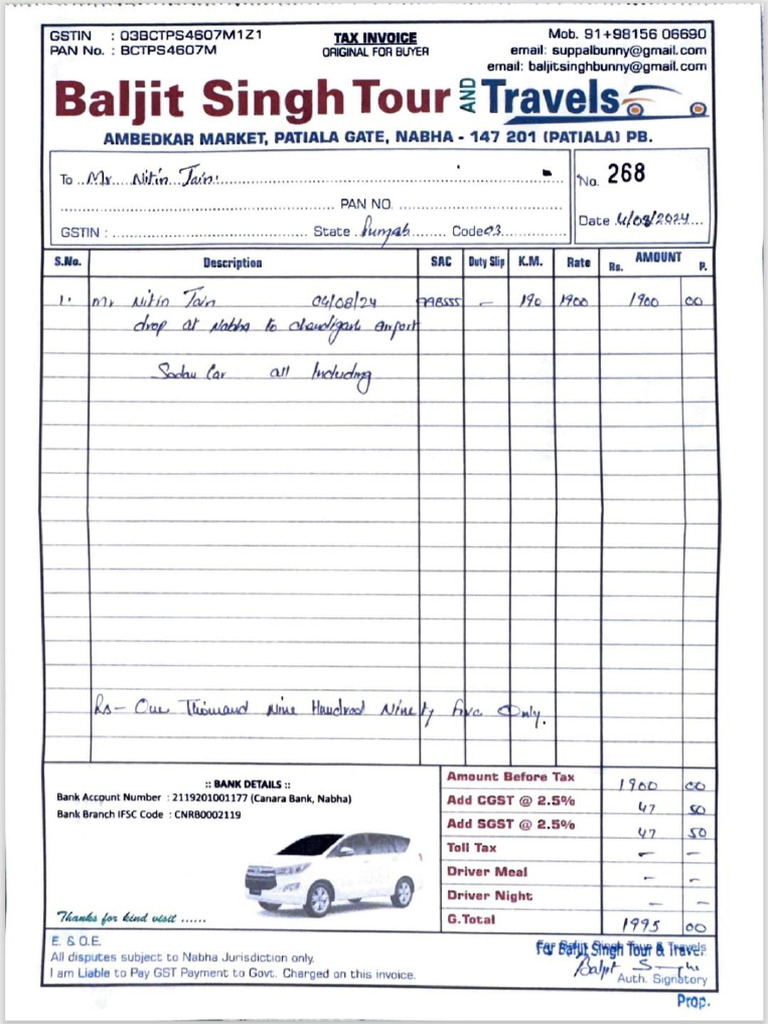 GSTIN : 03BCTPS4607M1Z1
PAN No. : BCTPS4607M
TAX INVOICE
ORIGINAL FOR BUYER
Mob. 91+98156 06690
email: suppalbunny@gmail.com
email: baljitsinghbunny@gmail.com
Baljit Singh Tour AND Travels
AMBEDKAR MARKET, PATIALA GATE, NABHA - 147 201 (PATIALA) PB.
To Mr. Nitin Jain
No. 268
PAN NO.
GSTIN : State Punjab Code 03
Date 4/08/2024
S.No. Description SAC Duty Slip K.M. Rate AMOUNT Rs. P.
1. Mr Nitin Jain 04/08/24 998555 - 190 1900 1900 00
drop at Nabha to Chandigarh airport
Car all Including
Rs - One Thousand Nine Hundred Ninety Five Only.
:: BANK DETAILS ::
Bank Account Number : 2119201001177 (Canara Bank, Nabha)
Bank Branch IFSC Code : CNRB0002119
Thanks for kind visit ......
Amount Before Tax 1900 00
Add CGST @ 2.5% 47 50
Add SGST @ 2.5% 47 50
Toll Tax - -
Driver Meal - -
Driver Night - -
G.Total 1995 00
E. & O.E.
All disputes subject to Nabha Jurisdiction only.
I am Liable to Pay GST Payment to Govt. Charged on this invoice.
For Baljit Singh Tour & Travels
For Baljit Singh Tour & Travel
Baljit Singh
Auth. Signatory
Prop.